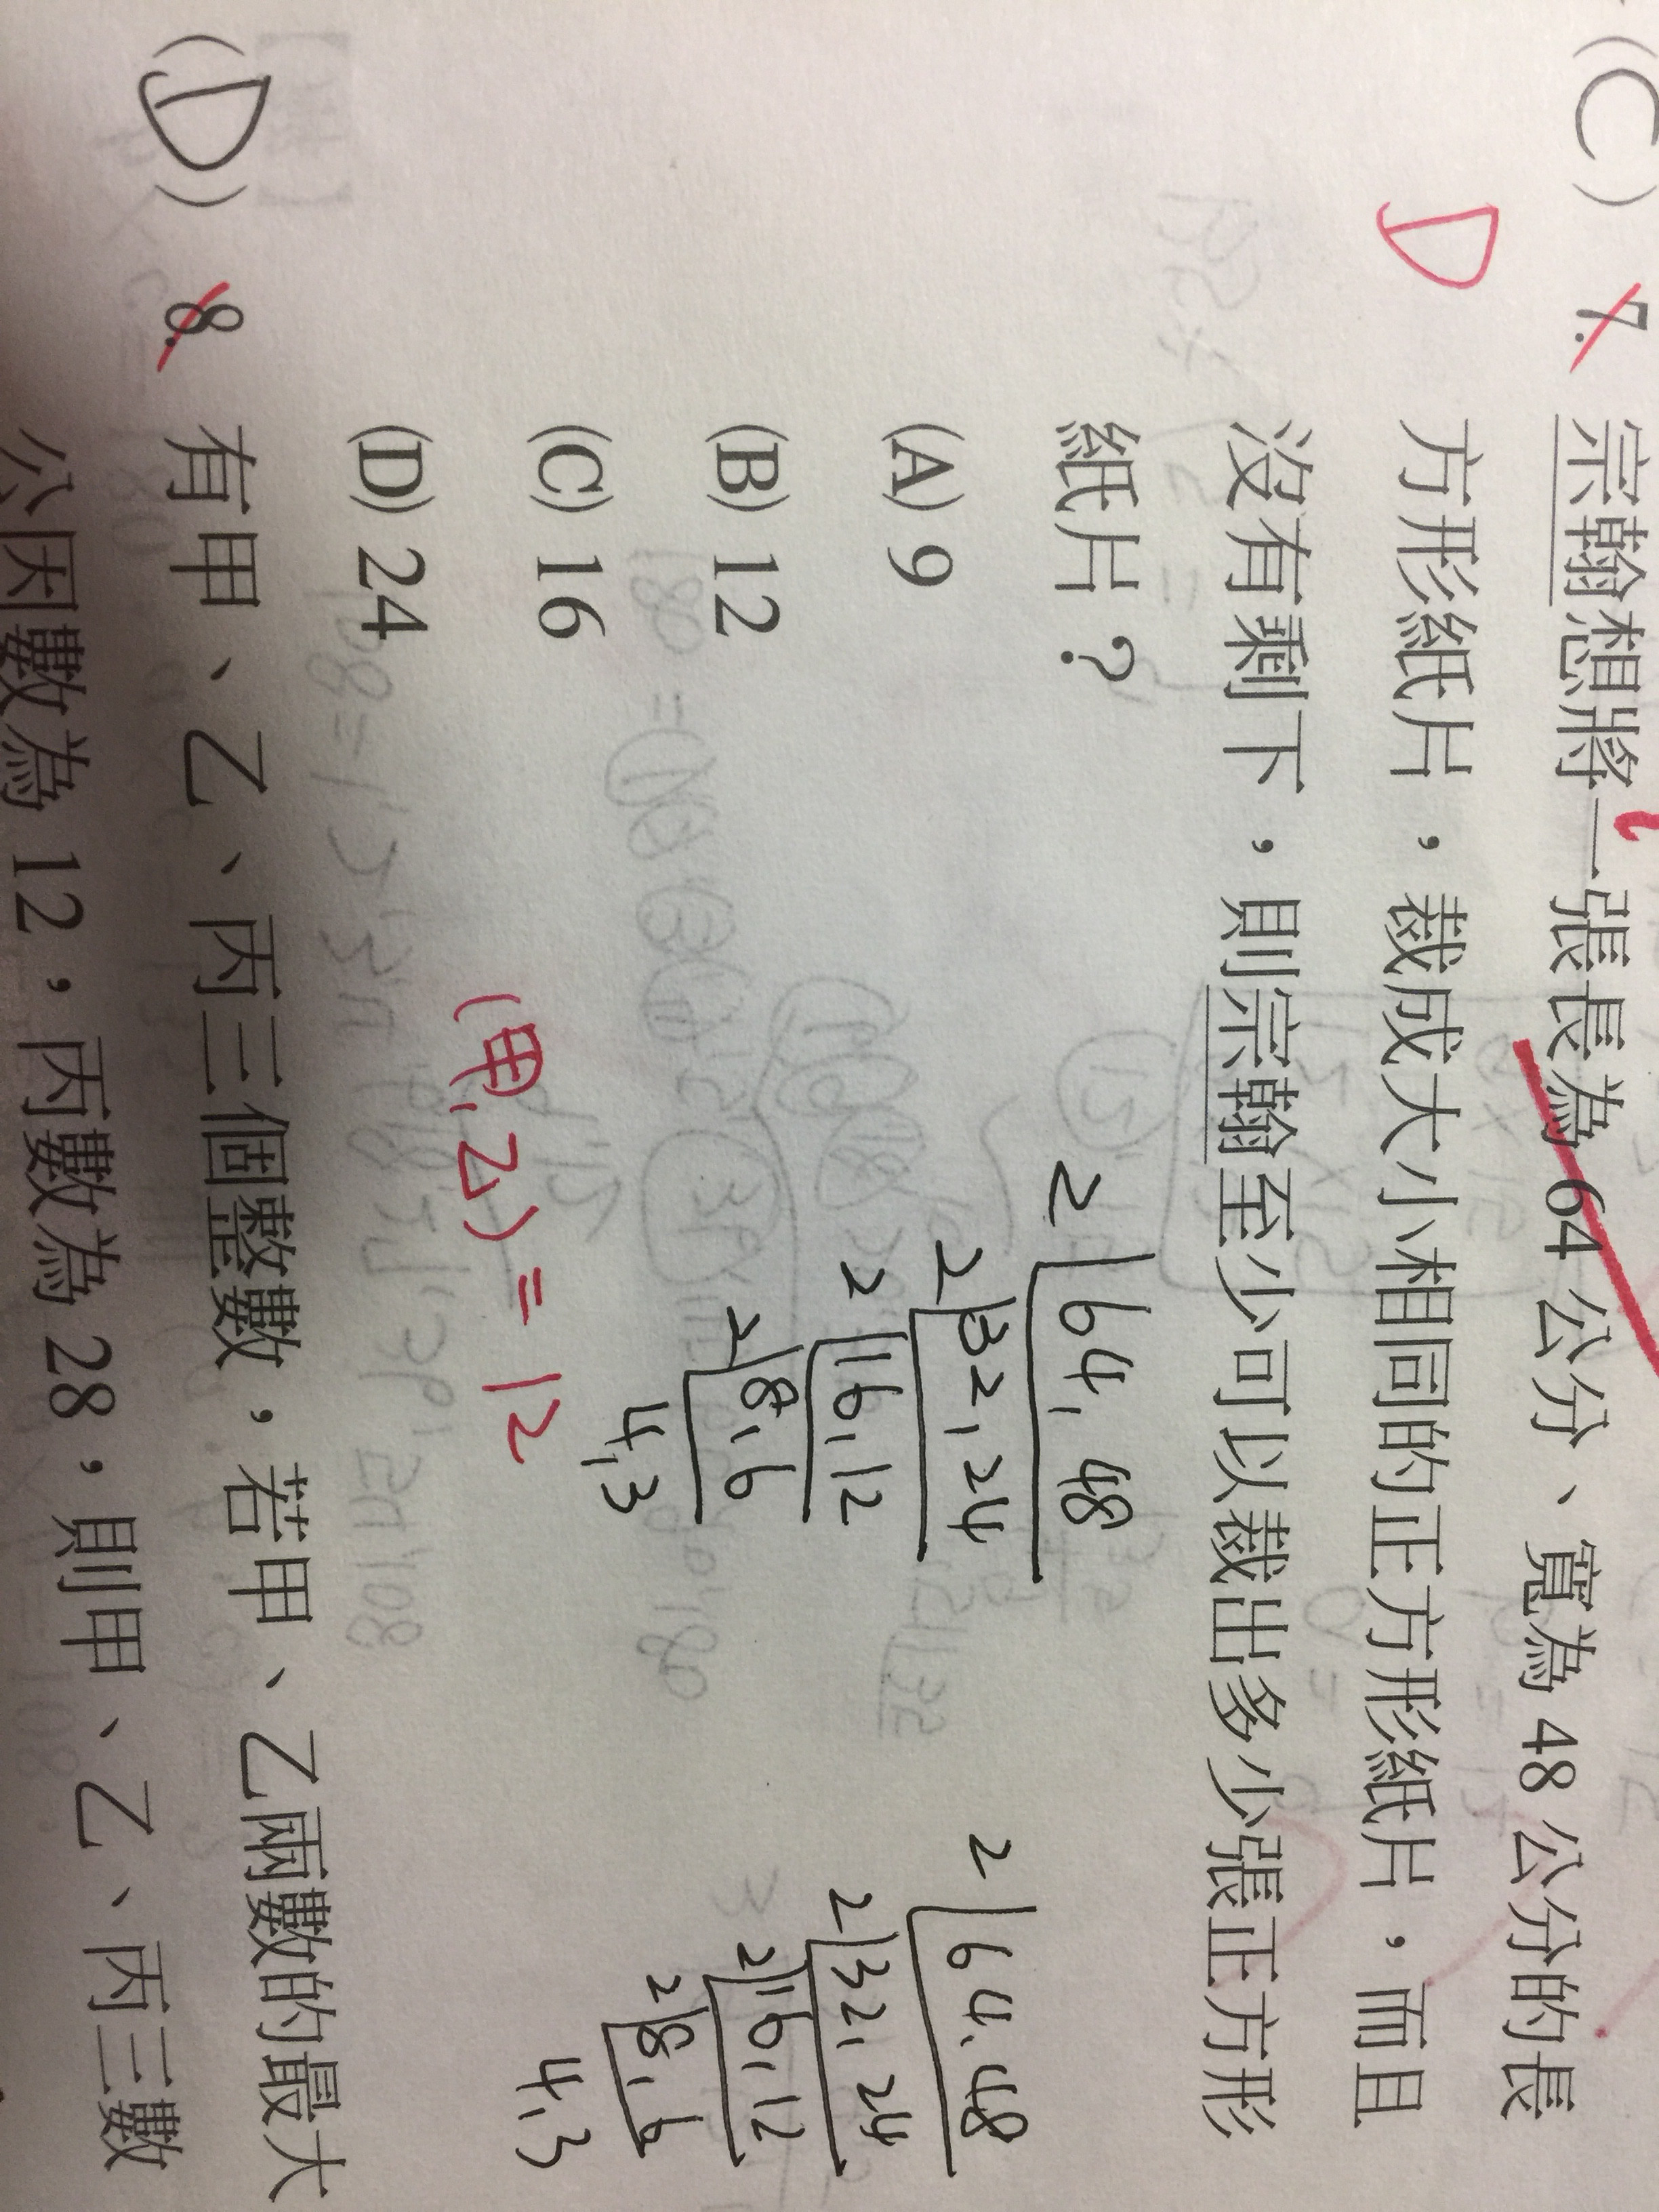 (C) 7. 宗翰想將一張長為 64 公分、寬為 48 公分的長
D 方形紙片，裁成大小相同的正方形紙片，而且
沒有剩下，則宗翰至少可以裁出多少張正方形
紙片？
(A) 9
(B) 12
(C) 16
(D) 24
2 64, 48
2 32, 24
2 16, 12
2 8, 6
4, 3
2 64, 48
2 32, 24
2 16, 12
2 8, 6
4, 3
(甲, 乙) = 12
(D) 8. 有甲、乙、丙三個整數，若甲、乙兩數的最大
公因數為 12，丙數為 28，則甲、乙、丙三數